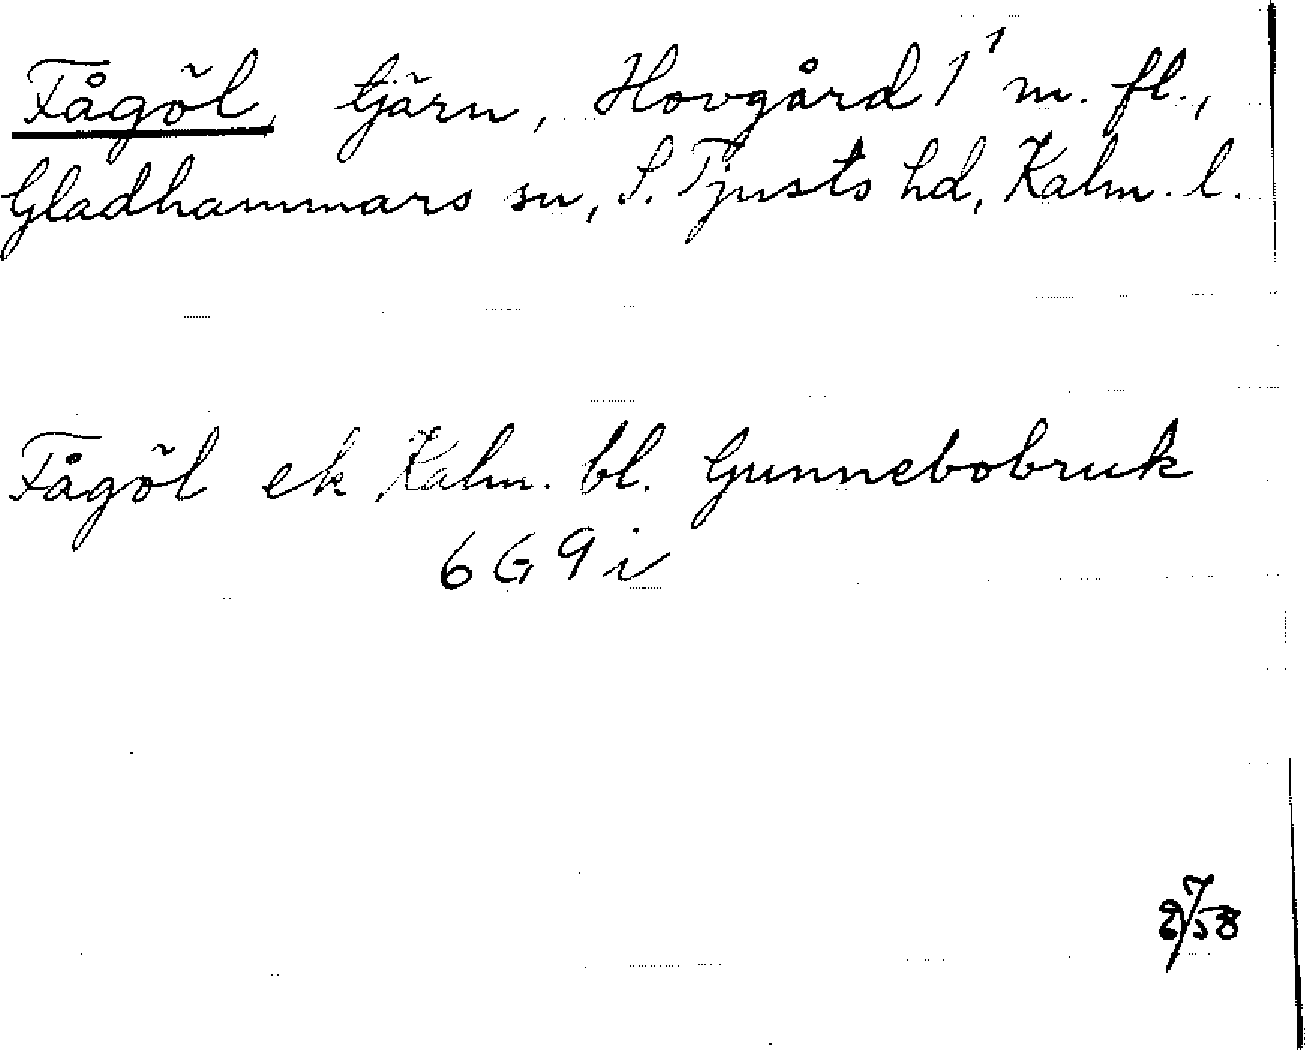 Fågöl, tjärn, Hovgård 1¹ m. fl.,
Gladhammars sn, S. Tjusts hd, Kalm. l.
Fågöl ek Kalm. bl. Gunnebobruk
6 G 9 i